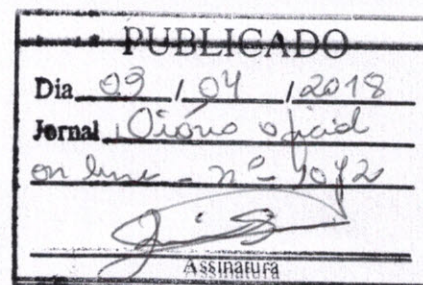 PUBLICADO
Dia 09 / 04 / 2018
Jornal Diário oficial
on line - nº 1072
Assinatura